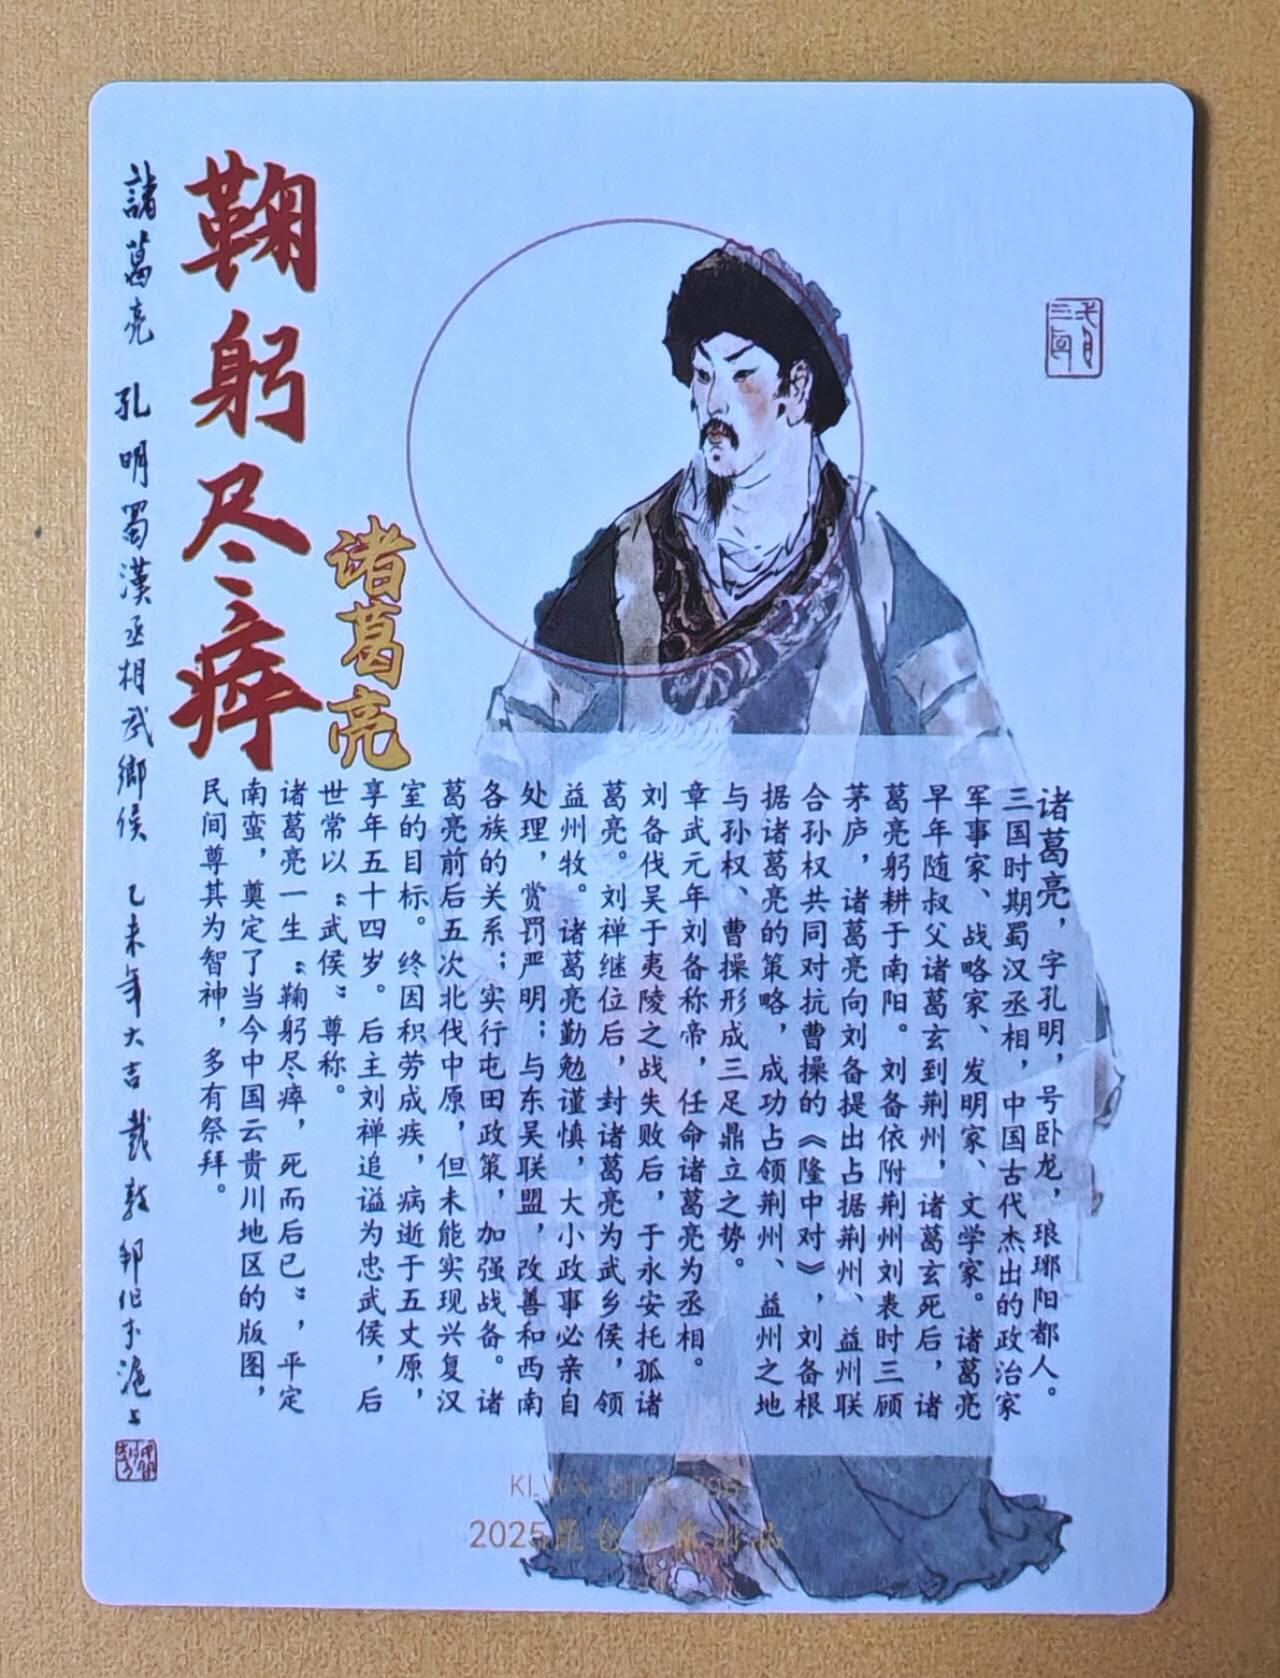 鞠躬尽瘁
诸葛亮
诸葛亮，字孔明，号卧龙，琅琊阳都人。
三国时期蜀汉丞相，中国古代杰出的政治家
军事家、战略家、发明家、文学家。诸葛亮
早年随叔父诸葛玄到荆州，诸葛玄死后，诸
葛亮躬耕于南阳。刘备依附荆州刘表时三顾
茅庐，诸葛亮向刘备提出占据荆州、益州联
合孙权共同对抗曹操的《隆中对》，刘备根
据诸葛亮的策略，成功占领荆州、益州之地
与孙权、曹操形成三足鼎立之势。
章武元年刘备称帝，任命诸葛亮为丞相。
刘备伐吴于夷陵之战失败后，于永安托孤诸
葛亮。刘禅继位后，封诸葛亮为武乡侯，领
益州牧。诸葛亮勤勉谨慎，大小政事必亲自
处理，赏罚严明；与东吴联盟，改善和西南
各族的关系；实行屯田政策，加强战备。诸
葛亮前后五次北伐中原，但未能实现兴复汉
室的目标。终因积劳成疾，病逝于五丈原，
享年五十四岁。后主刘禅追谥为忠武侯，后
世常以“武侯”尊称。
诸葛亮一生“鞠躬尽瘁，死而后已”，平定
南蛮，奠定了当今中国云贵川地区的版图，
民间尊其为智神，多有祭拜。
諸葛亮 孔明蜀漢丞相武鄉侯 乙未年大吉 戴敦邦作于滬上
2025昆仑